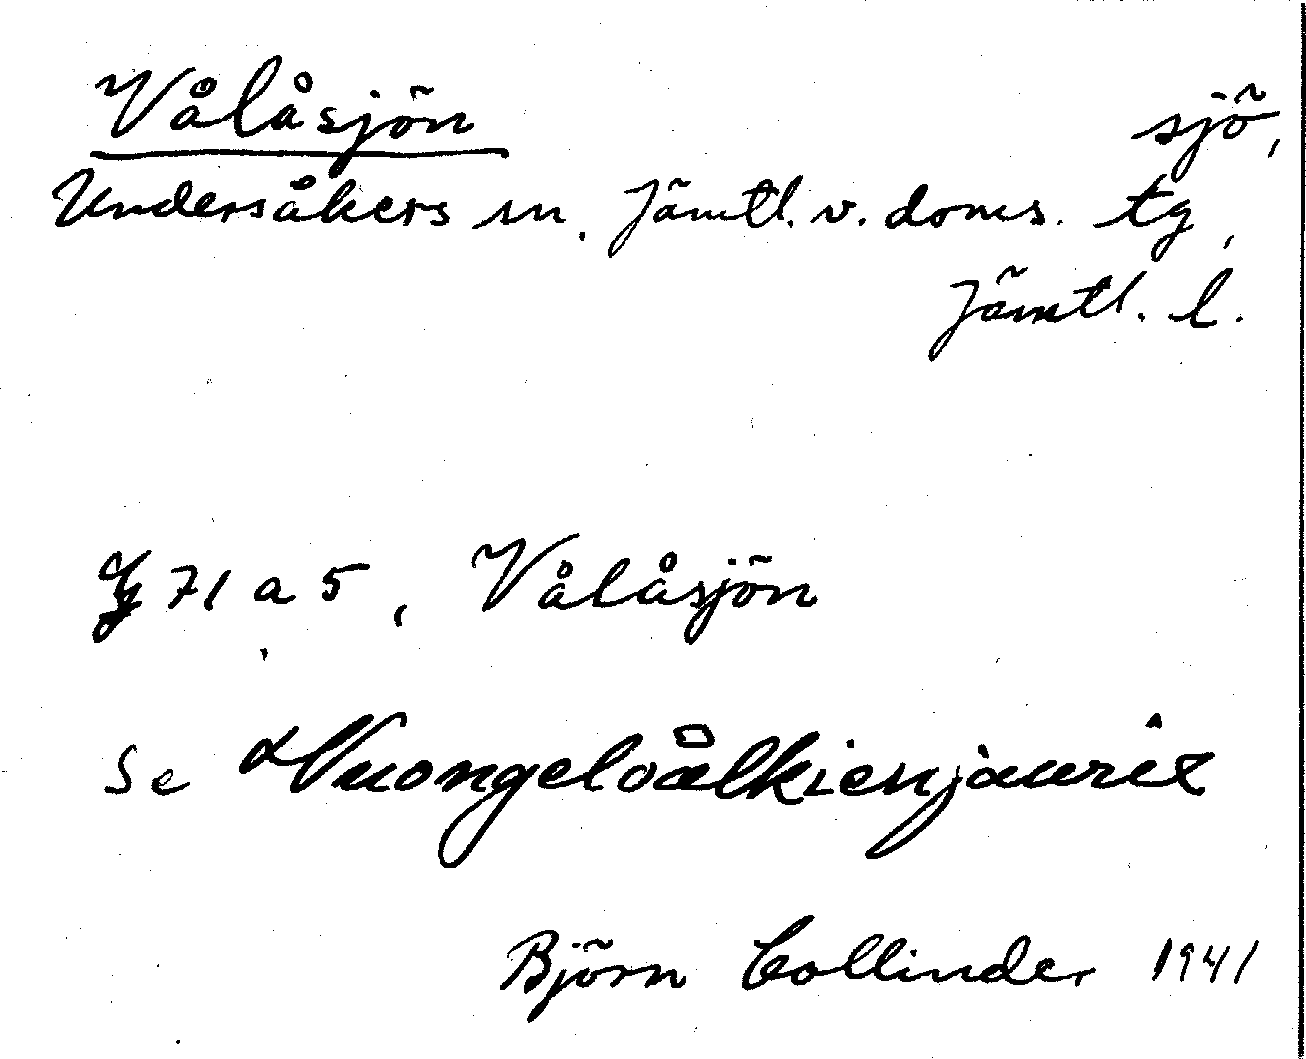 Vålåsjön
sjö,
Undersåkers sn. Jämtl. v. doms. tg,
Jämtl. l.
71 a 5, Vålåsjön
Se Vuongeloålkienjaurie
Björn Collinder 1941